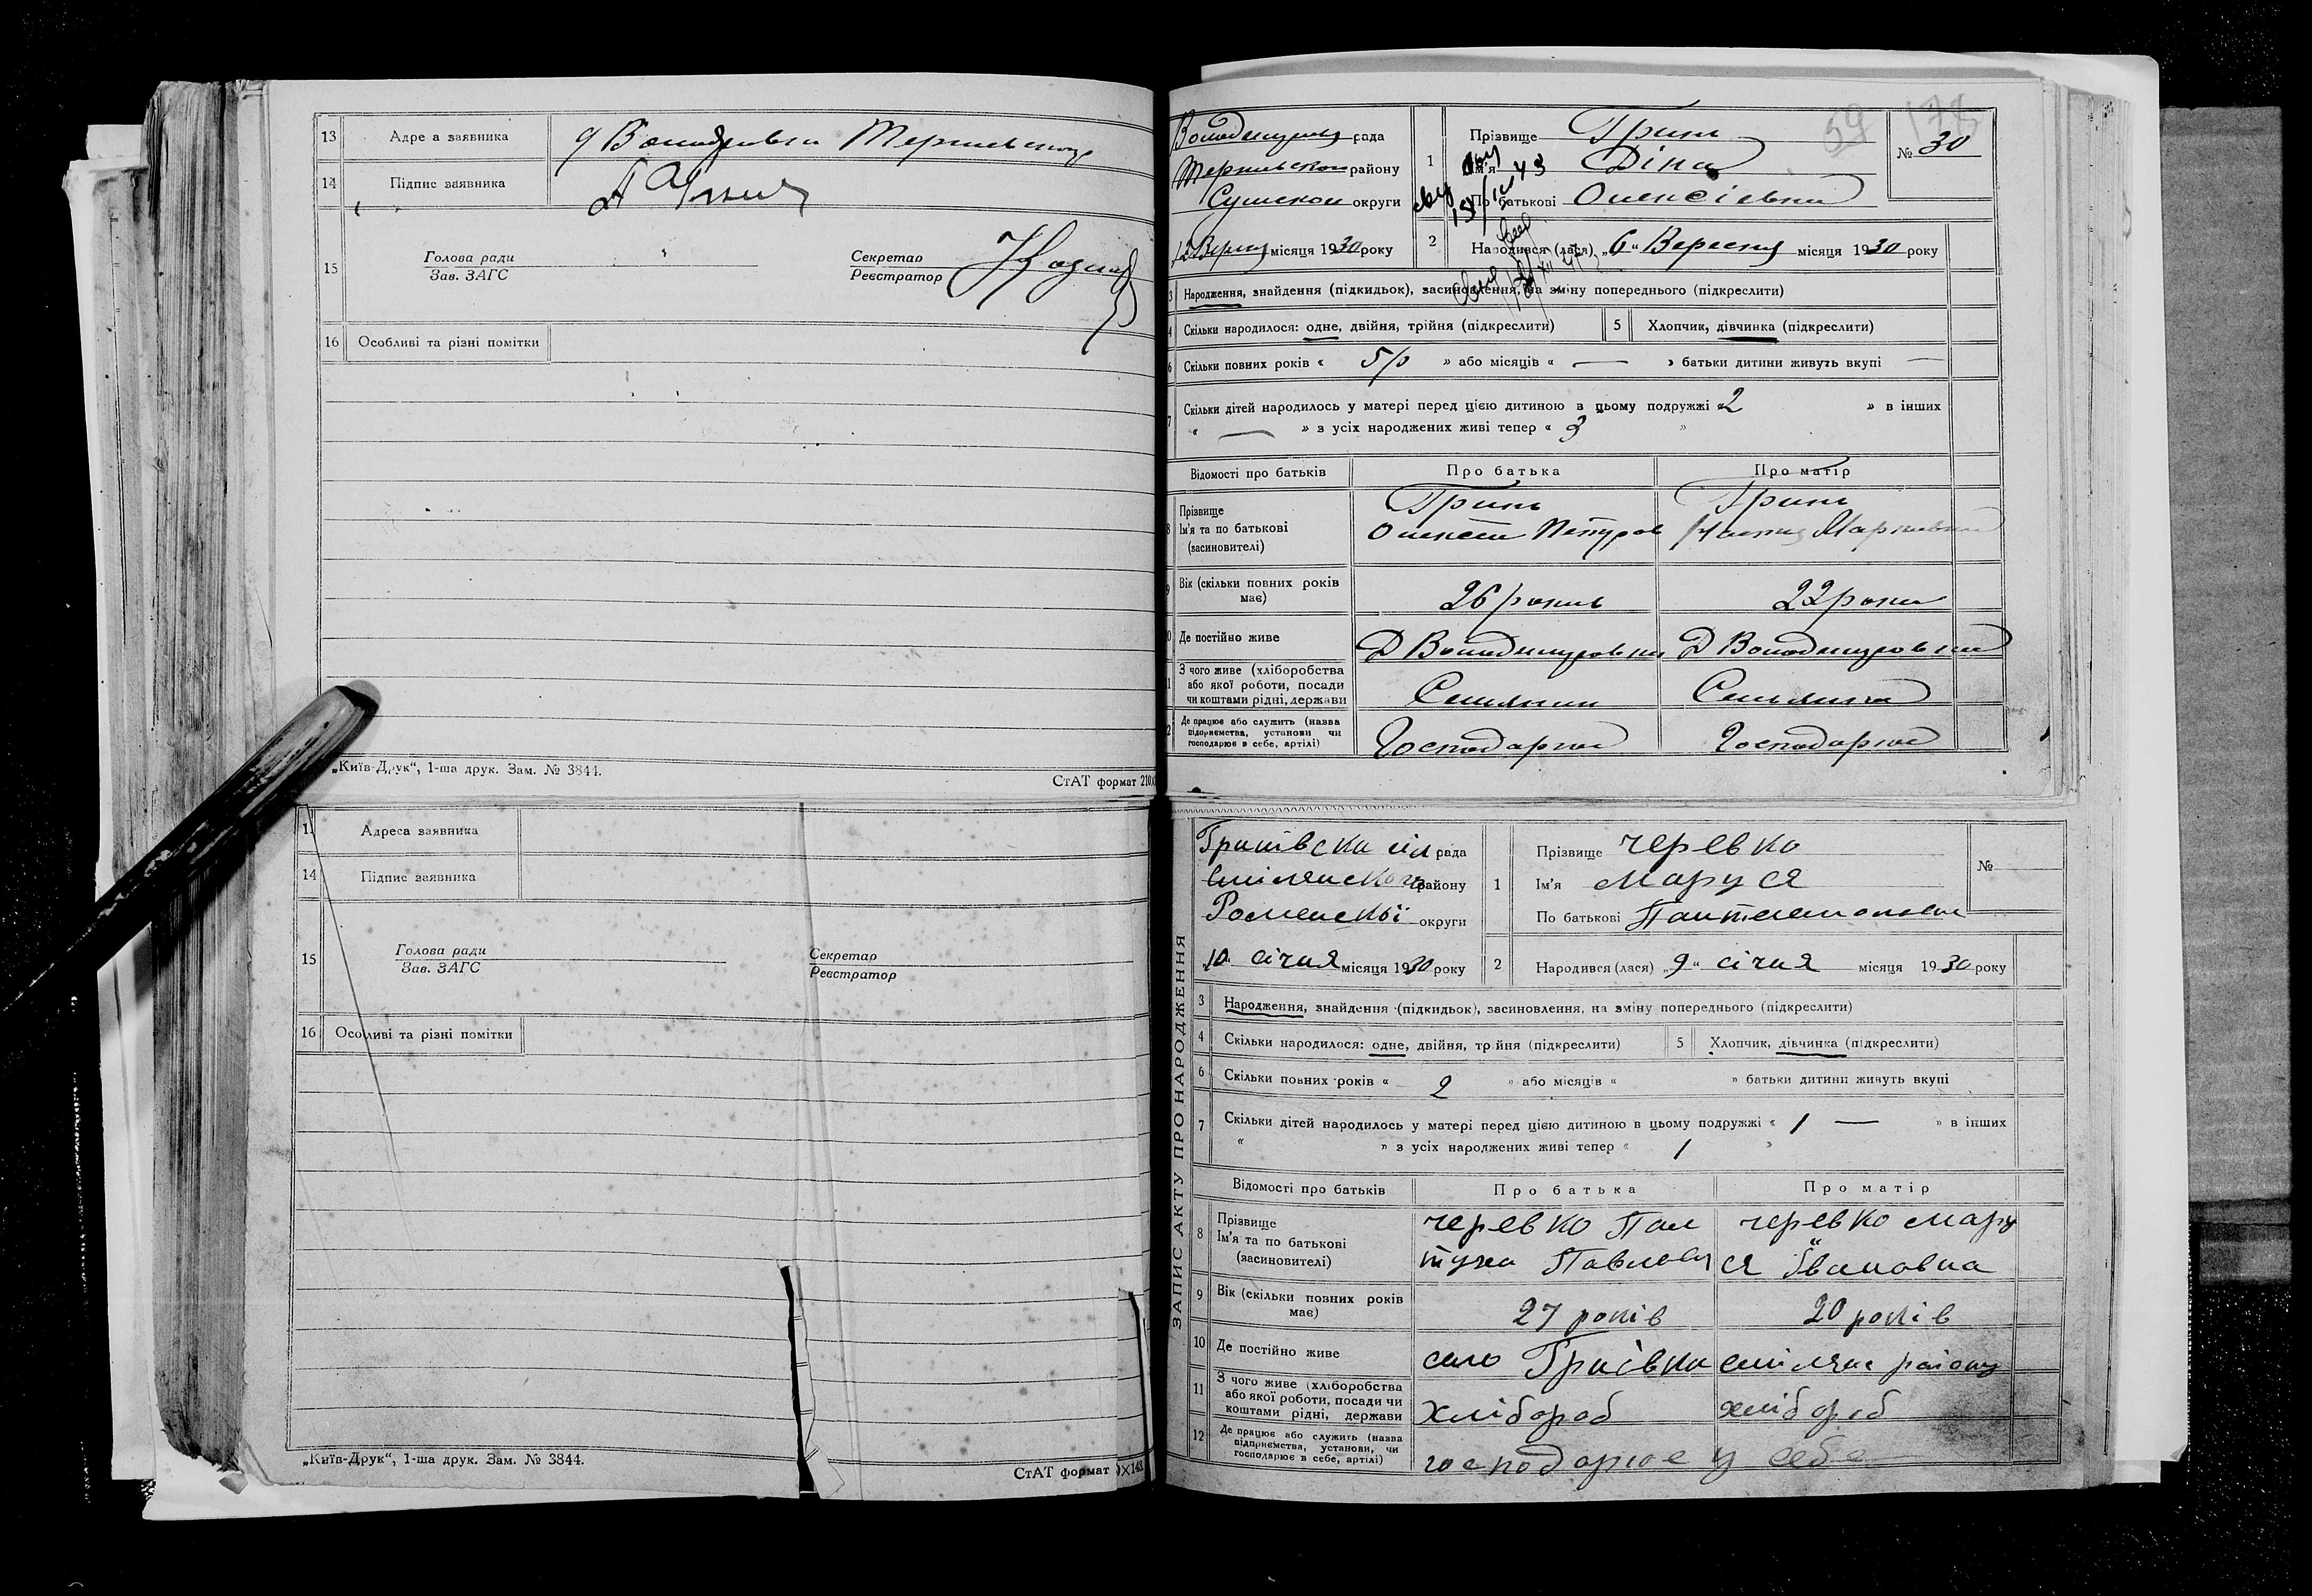 13 Адре а заявника
14 Підпис заявника
15 Голова ради
Зав. ЗАГС
Секретар
Реєстратор
16 Особливі та різні помітки
„Київ-Друк“, 1-ша друк. Зам. № 3844.
СтАТ формат 210х
рада
району
округи
12 місяця 1930 року
59
№ 30
1 Прізвище Гринь
Ім'я Діна
По батькові Олексієвна
2 Народився (лася) „6“ Вересня місяця 1930 року
3 Народження, знайдення (підкидьок), засиновлення, на зміну попереднього (підкреслити)
4 Скільки народилося: одне, двійня, трійня (підкреслити) 5 Хлопчик, дівчинка (підкреслити)
6 Скільки повних років « 5 р » або місяців « — » батьки дитини живуть вкупі —
7 Скільки дітей народилось у матері перед цією дитиною в цьому подружжі « 2 » в інших
« — » з усіх народжених живі тепер « 3 »
Відомості про батьків Про батька Про матір
8 Прізвище Гринь Гринь
Ім'я та по батькові Олексій Петров
(засиновителі)
9 Вік (скільки повних років має) 26 років 22 роки
10 Де постійно живе
11 З чого живе (хліборобства
або якої роботи, посади
чи коштами рідні, держави Селянин Селянка
12 Де працює або служить (назва
підприємства, установи чи
господарює в себе, артілі) Господарює Господарює
13 Адреса заявника
14 Підпис заявника
15 Голова ради
Зав. ЗАГС
Секретар
Реєстратор
16 Особливі та різні помітки
„Київ-Друк“, 1-ша друк. Зам. № 3844.
СтАТ формат
ЗАПИС АКТУ ПРО НАРОДЖЕННЯ
рада
району
Роменскої округи
„10“ січня місяця 1930 року
№
1 Прізвище Черевко
Ім'я Маруся
По батькові
2 Народився (лася) „9“ січня місяця 1930 року
3 Народження, знайдення (підкидьок), засиновлення, на зміну попереднього (підкреслити)
4 Скільки народилося: одне, двійня, трійня (підкреслити) 5 Хлопчик, дівчинка (підкреслити)
6 Скільки повних років « 2 » або місяців « » батьки дитини живуть вкупі
7 Скільки дітей народилось у матері перед цією дитиною в цьому подружжі « 1 — » в інших
« » з усіх народжених живі тепер « 1 »
Відомості про батьків Про батька Про матір
8 Прізвище черевко Пан черевко Мару
Ім'я та по батькові Павлович ся Івановна
(засиновителі)
9 Вік (скільки повних років має) 27 років 20 років
10 Де постійно живе село району
11 З чого живе (хліборобства
або якої роботи, посади чи
коштами рідні, держави хлібороб хлібороб
12 Де працює або служить (назва
підприємства, установи, чи
господарює в себе, артілі) господарює у себе